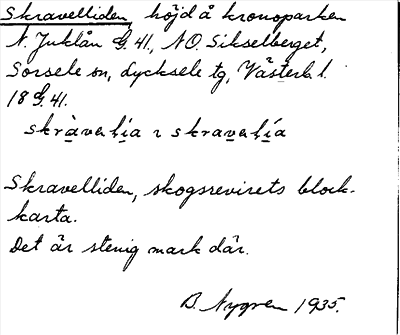 Skravelliden, höjd å kronoparken
N. Juklån G. 41, NO. Sikselberget,
Sorsele sn, Lycksele tg, Västerb l.
18 G. 41.
skràvaḷía ɿ skravaḷía
Skravelliden, skogsrevirets block-
karta.
Det är stenig mark där.
B. Nygren 1935.